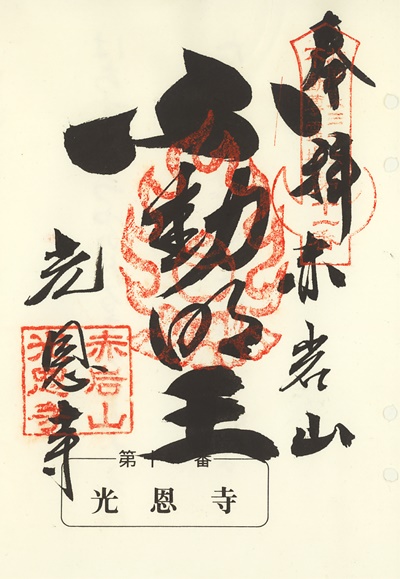 奉拝
赤岩山
不動明王
光恩寺
赤岩山
光恩寺
第十番
光恩寺